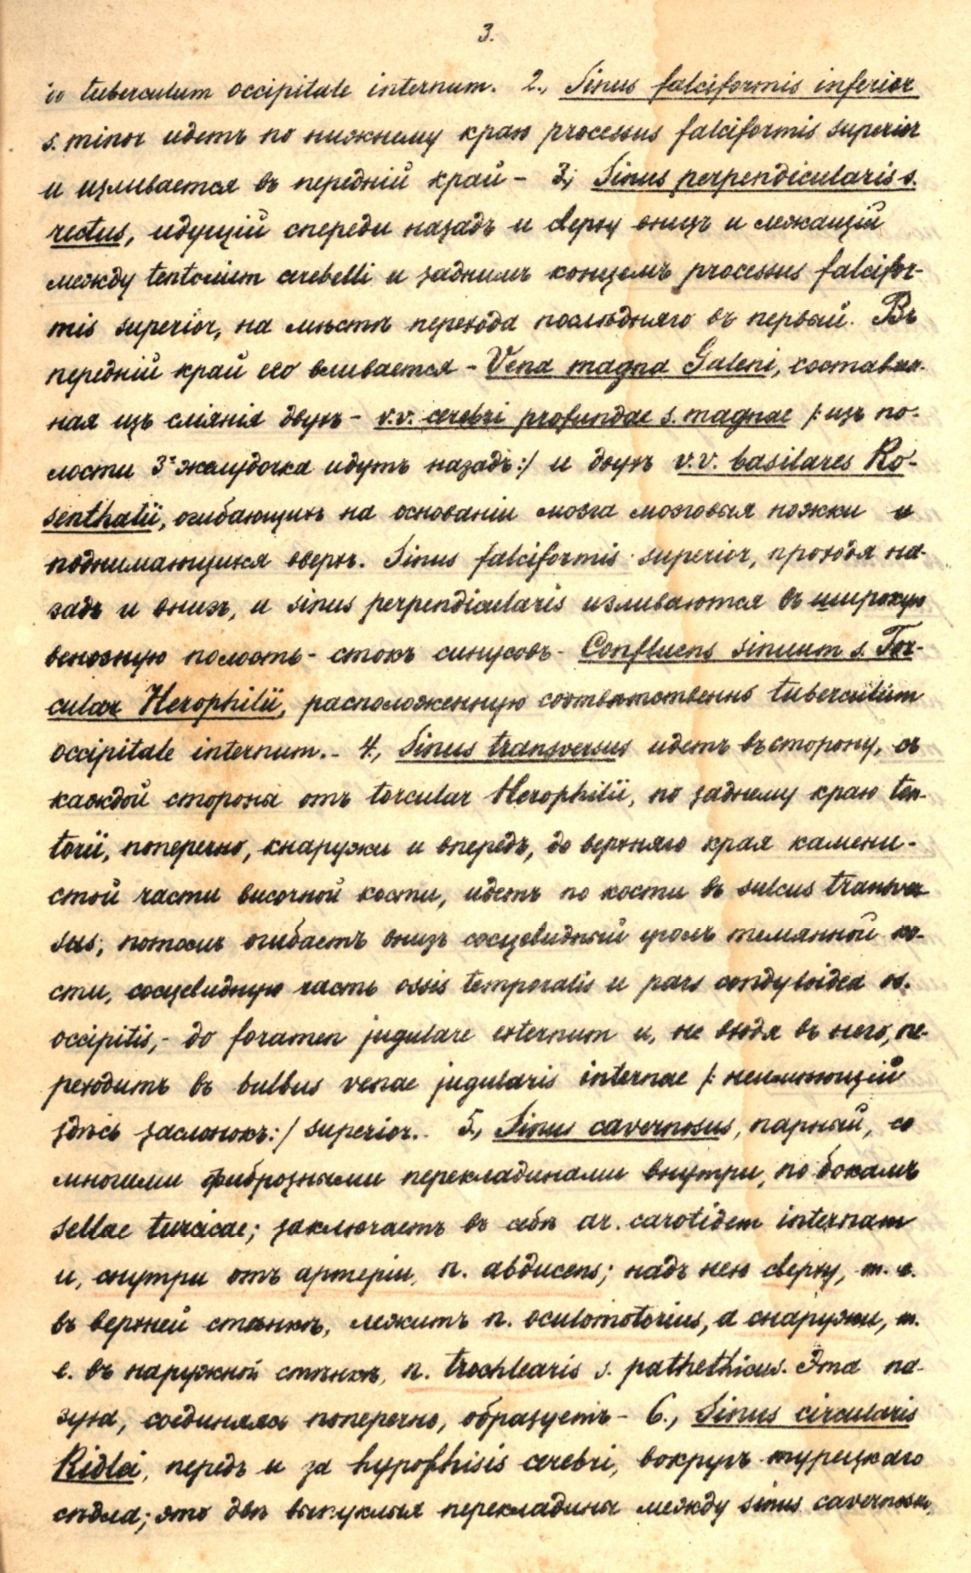 3.
до tuberculum occipitale internum. 2., Sinus falciformis inferior
s. minor идетъ по нижнему краю processus falciformis superior
и изливается въ передній край – 3., Sinus perpendicularis s.
rectus, идущій спереди назадъ и сверху внизъ и лежащій
между tentorium cerebelli и заднимъ концомъ processus falcifor-
mis superior, на мѣстѣ перехода послѣдняго въ первый. Въ
передній край его вливается – Vena magna Galeni, составлен-
ная изъ сліянія двухъ – v.v. cerebri profundae s. magnae /: изъ по-
лости 3го желудочка идутъ назадъ :/ и двухъ v.v. basilares Ro-
senthalii, огибающихъ на основаніи мозга мозговыя ножки и
поднимающихся вверхъ. Sinus falciformis superior, проходя на-
задъ и внизъ, и sinus perpendicularis изливаются въ широкую
венозную полость – стокъ синусовъ – Confluens sinuum s. Tor-
cular Herophilii, расположенную соотвѣтственно tuberculum
occipitale internum. – 4., Sinus transversus идетъ въ сторону, съ
каждой стороны отъ torcular Herophilii, по заднему краю ten-
torii, поперечно, кнаружи и впередъ, до верхняго края камени-
стой части височной кости, идетъ по кости въ sulcus transver
sus, потомъ огибаетъ внизъ сосцевидный уголъ темянной ко-
сти, сосцевидную часть ossis temporalis и pars condyloidea os.
occipitis, – до foramen jugulare externum и, не входя въ него, пе-
реходитъ въ bulbus venae jugularis internae /: неимѣющій
здѣсь заслонокъ :/ superior. – 5., Sinus cavernosus, парный, со
многими фиброзными перекладинами внутри, по бокамъ
sellae turcicae; заключаетъ въ себѣ ar. carotidem internam
и, снутри отъ артеріи, n. abducens; надъ нею сверху, т. е.
въ верхней стѣнкѣ, лежитъ n. oculomotorius, а снаружи, т.
е. въ наружной стѣнкѣ, n. trochlearis s. pathethicus. Эта па-
зуха, соединяясь поперечно, образуетъ – 6., Sinus circularis
Ridlei, передъ и за hypophisis cerebri, вокругъ турецкаго
сѣдла; это двѣ выпуклыя перекладины между sinus cavernosus,